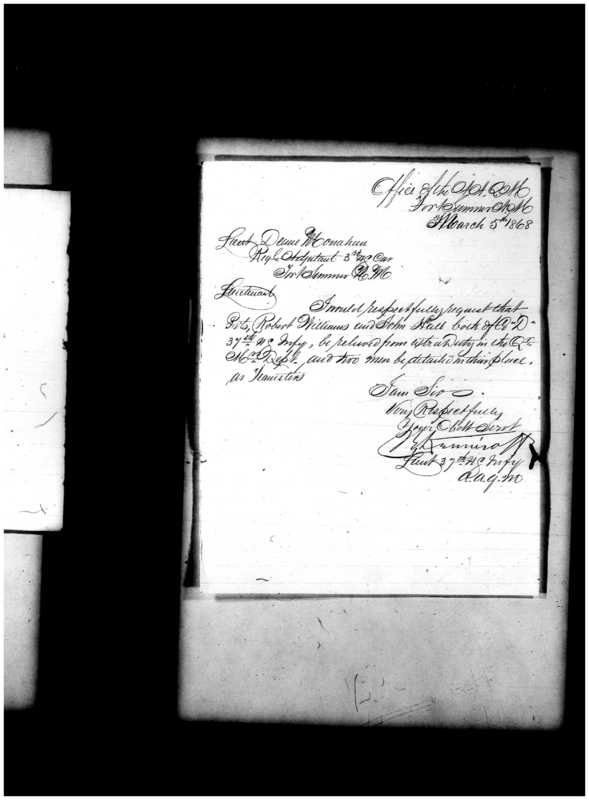 Office of the A.A.Q.M
Fort Sumner N.M
March 5th 1868
Lieut Deane Monahan
Regl. Adjutant 3rd US Cav
Fort Sumner N.M.
Lieutenant
I would respectfully request that
Pvts, Robert Williams and John Hall both of Co "D"
37th US Infy, be relieved from extra duty in the Qr
Mrs Dept. and two men be detailed in their place.
as Teamsters
I am Sir
Very Respectfully
Your Obdt Servt
Lieut 37th US Infy
A.A.Q.M